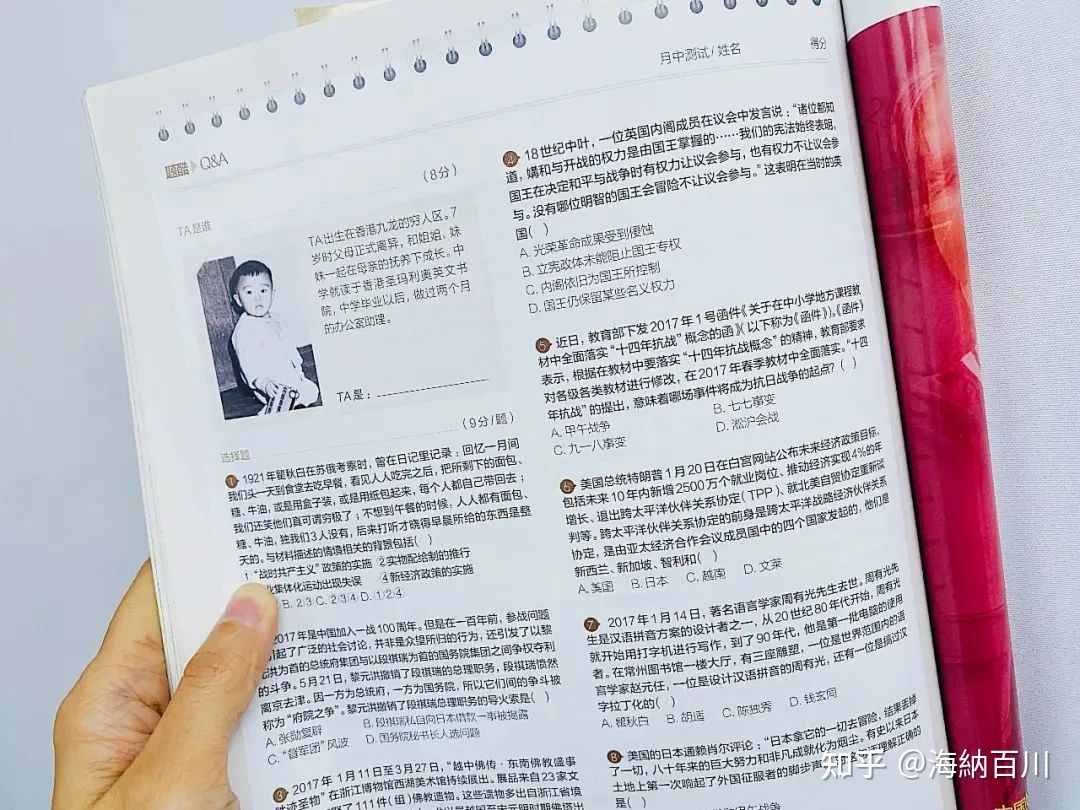 月中测试/姓名
得分
题酷 Q&A
(8分)
TA是谁
TA出生在香港九龙的穷人区。7
岁时父母正式离异，和姐姐、妹
妹一起在母亲的抚养下成长。中
学就读于香港圣玛利奥英文书
院，中学毕业以后，做过两个月
的办公室助理。
TA是：
(9分/题)
选择题
1 1921年瞿秋白在苏俄考察时，曾在日记里记录：回忆一月间
我们头一天到食堂去吃早餐，看见人人吃完之后，把所剩下的面包、
糖、牛油，或是用盒子装，或是用纸包起来，每个人都自己带回去；
我们还笑他们真可谓穷极了；不想到午餐的时候，人人都有面包、
糖、牛油，独我们3人没有，后来打听才晓得早晨所给的东西是整
天的。与材料描述的情境相关的背景包括( )
①“战时共产主义”政策的实施 ②实物配给制的推行
集体化运动出现失误 ④新经济政策的实施
B.②③ C.②③④ D.①②④
2017年是中国加入一战100周年。但是在一百年前，参战问题
引起了广泛的社会讨论，并非是众望所归的行为，还引发了以黎
元洪为首的总统府集团与以段祺瑞为首的国务院集团之间争权夺利
的斗争。5月21日，黎元洪撤销了段祺瑞的总理职务，段祺瑞愤然
离京去津。因一方为总统府，一方为国务院，所以它们间的争斗被
称为“府院之争”。黎元洪撤销了段祺瑞总理职务的导火索是( )
A.张勋复辟 B.段祺瑞私自向日本借款一事被揭露
C.“督军团”风波 D.国务院秘书长人选问题
3 2017年1月11日至3月27日，“越中佛传·东南佛教盛事
胜迹圣物”在浙江博物馆西湖美术馆持续展出。展品来自23家文
111件(组)佛教遗物。这些遗物多出自浙江省境
4 18世纪中叶，一位英国内阁成员在议会中发言说：“诸位都知
道，媾和与开战的权力是由国王掌握的……我们的宪法始终表明，
国王在决定和平与战争时有权力让议会参与，也有权力不让议会参
与。没有哪位明智的国王会冒险不让议会参与。”这表明在当时的英
国( )
A.光荣革命成果受到侵蚀
B.立宪政体未能阻止国王专权
C.内阁依旧为国王所控制
D.国王仍保留某些名义权力
5 近日，教育部下发2017年1号函件《关于在中小学地方课程教
材中全面落实“十四年抗战”概念的函》（以下称为《函件》）。《函件》
表示，根据在教材中要落实“十四年抗战概念”的精神，教育部要求
对各级各类教材进行修改，在2017年春季教材中全面落实。“十四
年抗战”的提出，意味着哪场事件将成为抗日战争的起点？( )
A.甲午战争 B.七七事变
C.九一八事变 D.淞沪会战
6 美国总统特朗普1月20日在白宫网站公布未来经济政策目标，
包括未来10年内新增2500万个就业岗位、推动经济实现4%的年
增长、退出跨太平洋伙伴关系协定(TPP)、就北美自贸协定重新谈
判等。跨太平洋伙伴关系协定的前身是跨太平洋战略经济伙伴关系
协定，是由亚太经济合作会议成员国中的四个国家发起的，他们是
新西兰、新加坡、智利和( )
A.美国 B.日本 C.越南 D.文莱
7 2017年1月14日，著名语言学家周有光先生去世。周有光先
生是汉语拼音方案的设计者之一，从20世纪80年代开始，周有光
就开始用打字机进行写作，到了90年代，他是第一批电脑的使用
者。在常州图书馆一楼大厅，有三座雕塑，一位是世界范围内的语
言学家赵元任，一位是设计汉语拼音的周有光，还有一位是搞过汉
字拉丁化的( )
A.瞿秋白 B.胡适 C.陈独秀 D.钱玄同
8 美国的日本通赖肖尔评论：“日本拿它的一切去冒险，结果丢掉
了一切，八十年来的巨大努力和非凡成就化为烟尘。有史以来日本
土地上第一次响起了外国征服者的脚步声。
是( )
知乎 @海納百川